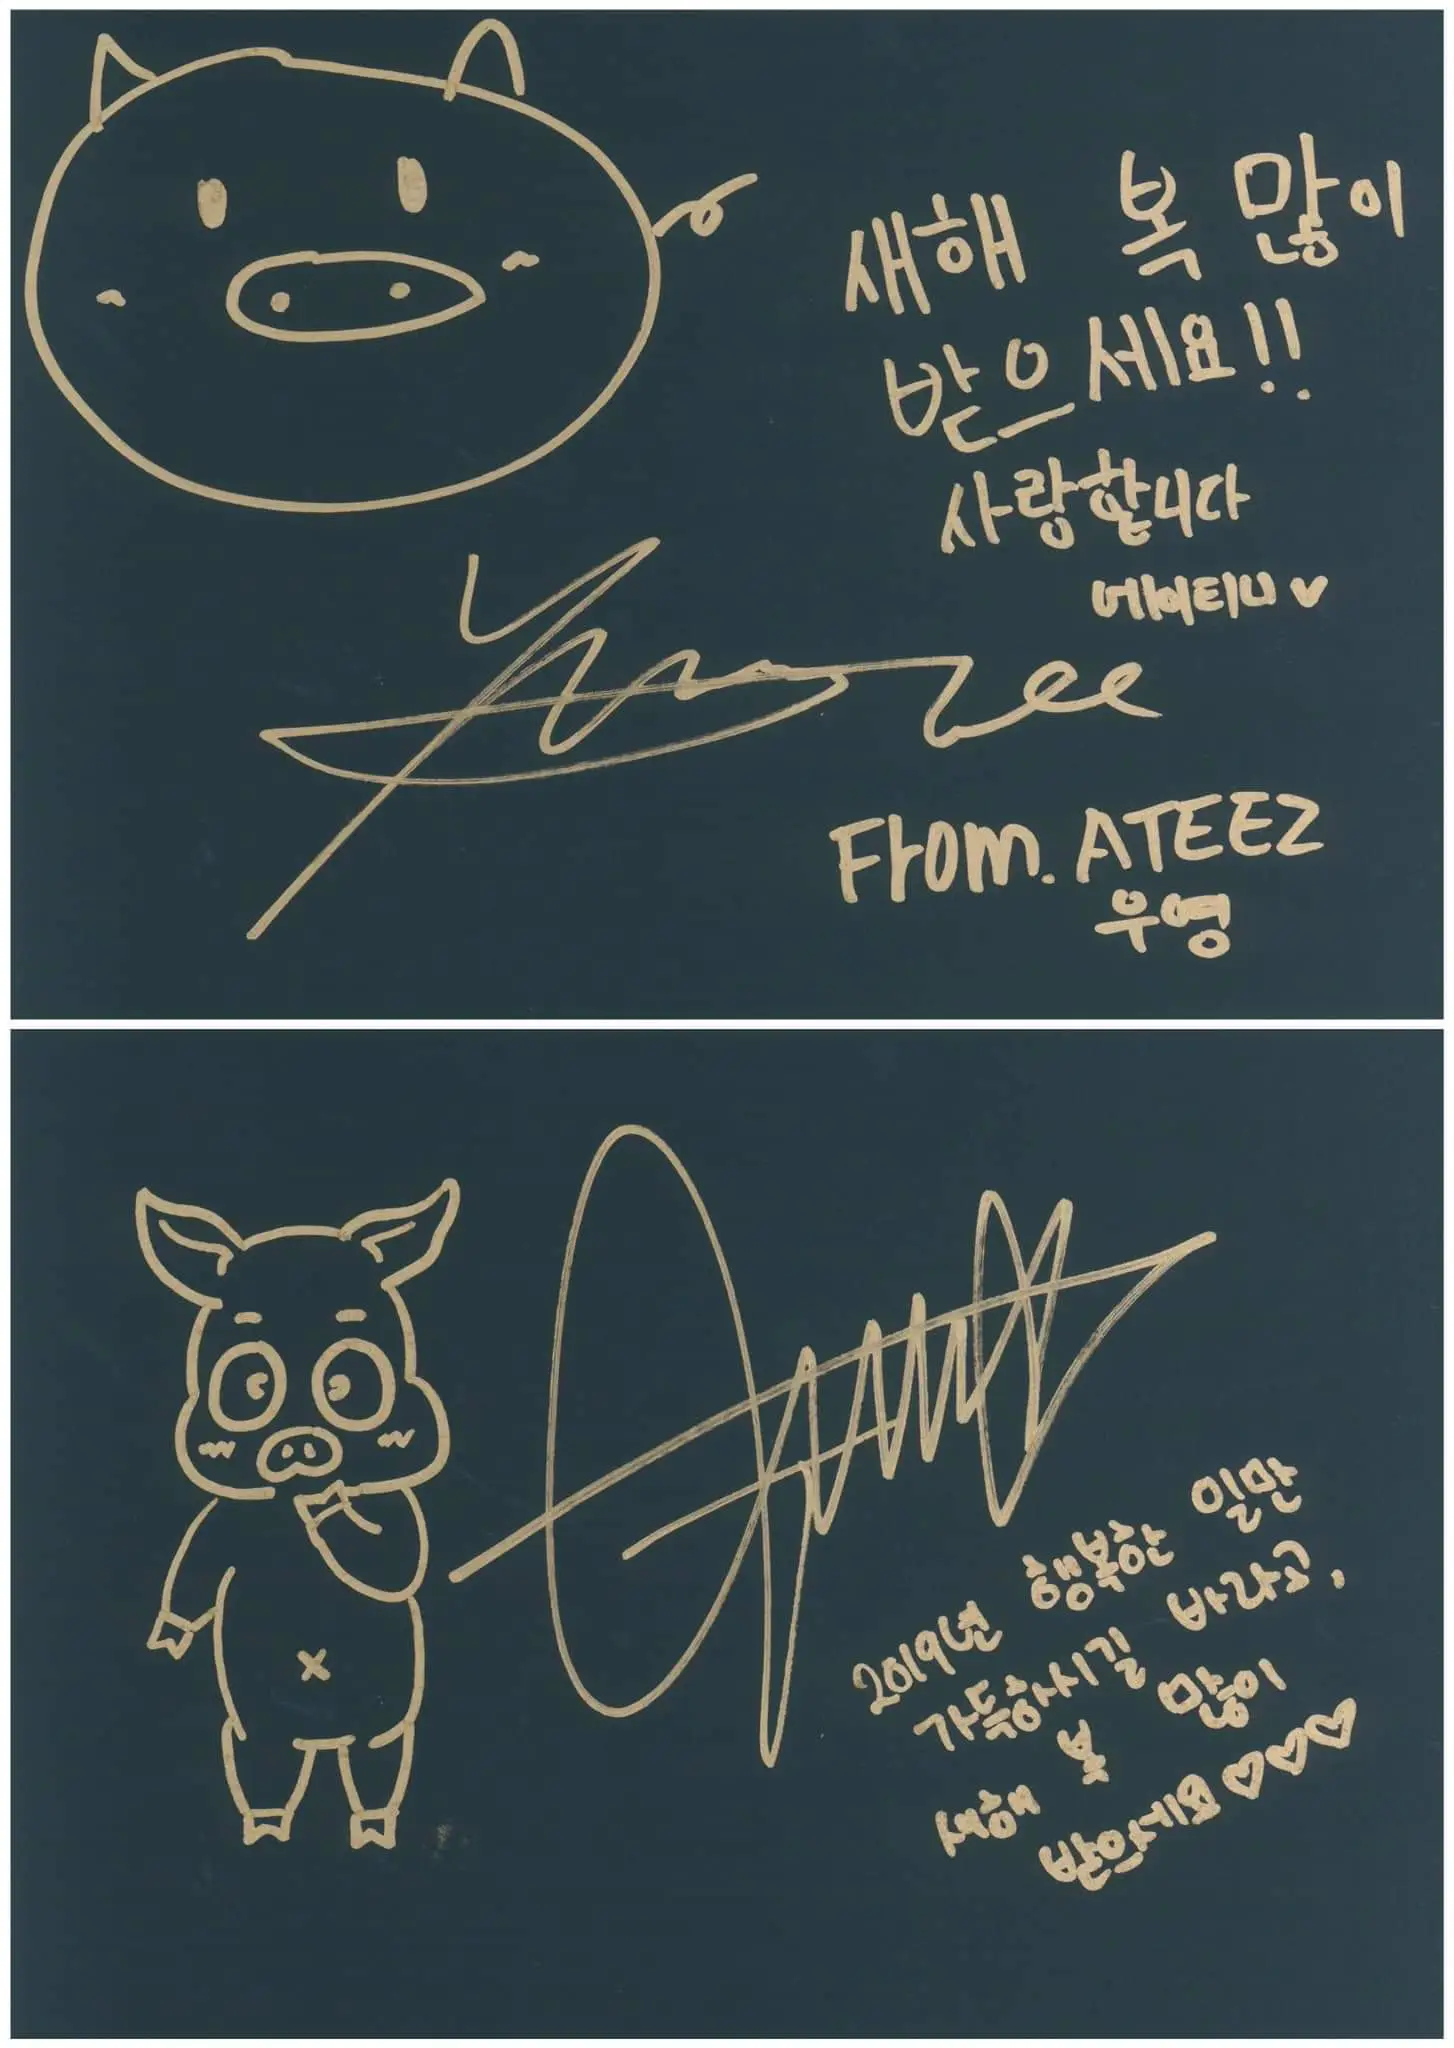 새해 복 많이
받으세요!!
사랑합니다
에이티니♥
From. ATEEZ
우영
2019년 행복한 일만
가득하시길 바라고,
새해 복 많이
받으세요♡♡♡